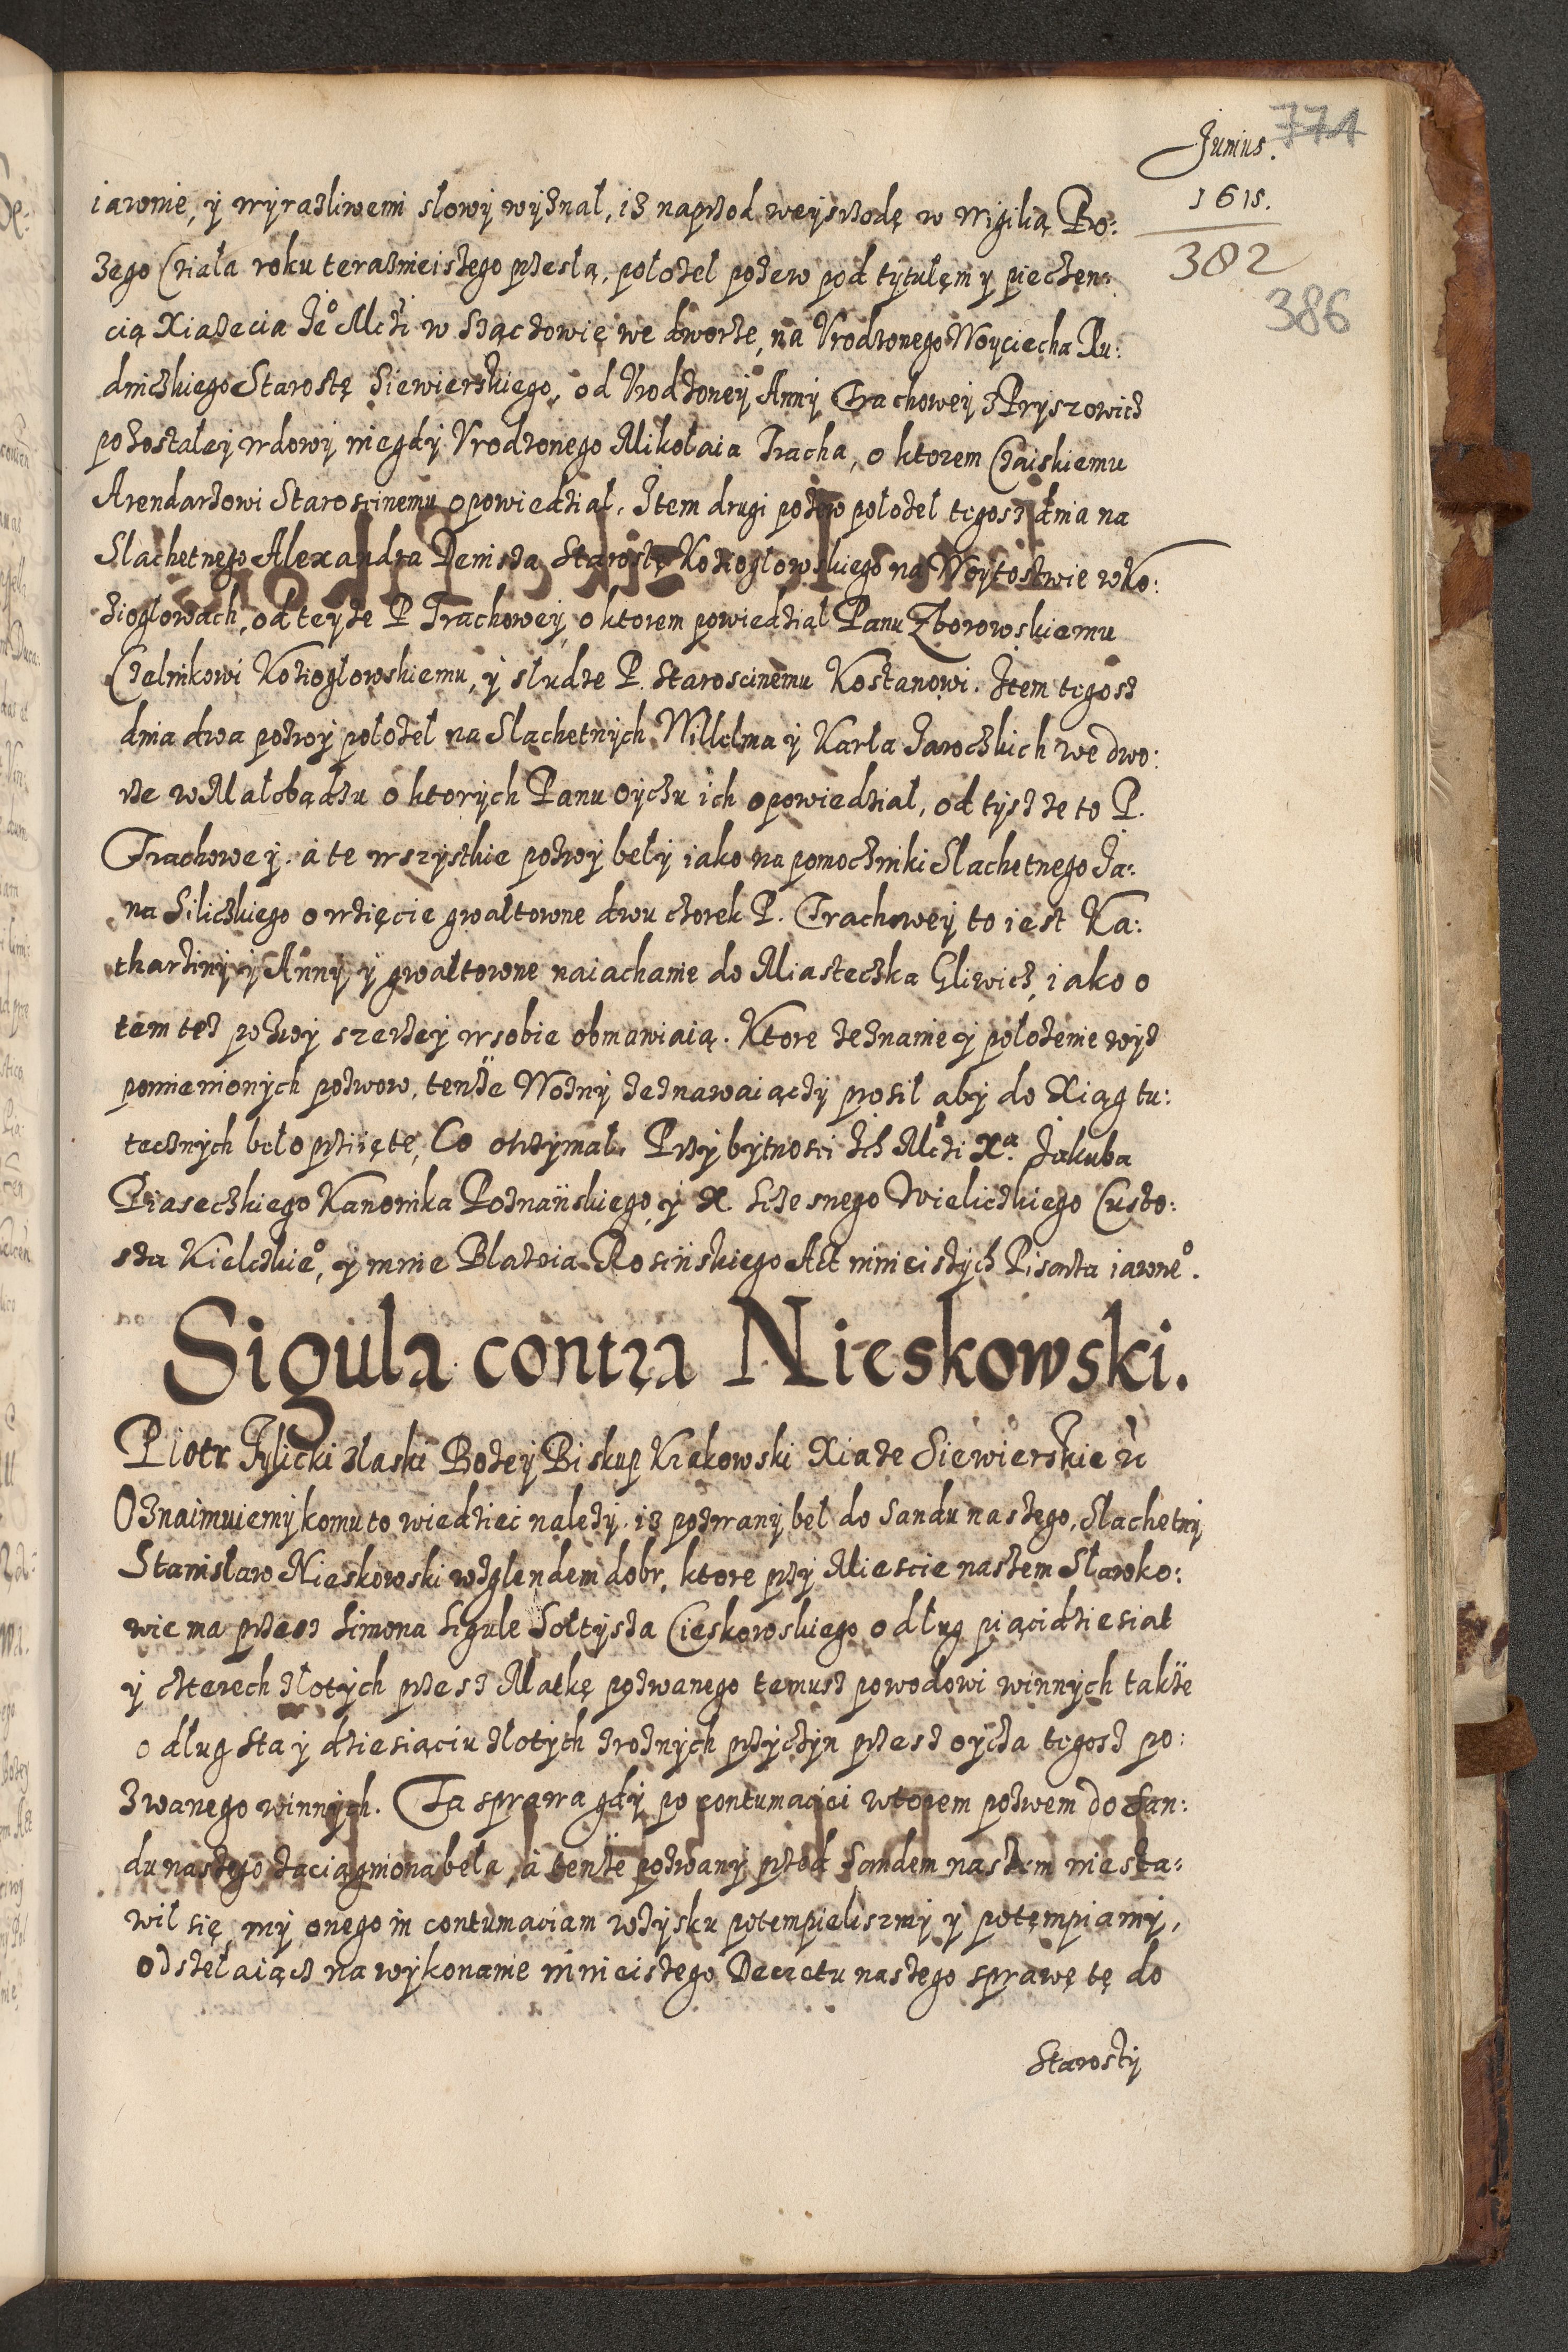 Junius. 774
1615.
382
386
iawnie, y wyrazliwemi slowy wyznal, iz naprzod weysrzodę w wigilią Bo:
zego Cziala roku teraznieiszego przeszlą, polozel pozew pod tytulęm y pieczen:
cią Xiązecia Je&#x366; Mczi w Sączowie we dworze, na Vrodzonego Woyciecha Ru:
dniczkiego Starostę Siewierskiego, od Vrodzoney Anny Trachowey z Bryszowicz
pozostaley wdowy niegdy Vrodzonego Mikolaia Tracha, o ktorem Czaiskiemu
Arendarzowi Staroscinemu opowiedzial. Item drugi pozew polozel tegosz dnia na
Slachetnego Alexandra Denisza Starostę Kozioglowskiego na Woytostwie w Ko:
zioglowach, od teyze P Trachowey, o ktorem powiedzial Panu Zborowskiemu
Czelnikowi Kozioglowskiemu, y sludze P. Staroscinemu Kostanowi. Item tegosz
dnia dwa pozwy polozel na Slachetnych Willelma y Karla Jaroczkich we dwo:
rze w Malobądzu o ktorych Panu oyczu ich opowiedzial, od tysz ze to P.
Trachowey. a te wszystkie pozwy bely iako na pomoczniki Slachetnego Ja:
na Siliczkiego o wzięcie gwaltowne dwu czorek P. Trachowey to iest Ka:
tharziny y Anny y gwaltowne naiachanie do Miasteczka Gliwicz, iako o
tem tez pozwy szerzey w sobie obmawiaią. Ktore zeznanie y polozenie wyz
pomienionych pozwow, tenze Wozny zeznawaiączy prosil aby do Xiąg tu:
tecznych belo przyięte, Co otrzymal. Przy bytnosci Ich Mczi Xa. Jakuba
Piaseczkiego Kanonika Poznańskiego, y X. Sczesnego Wieliczkiego Custo:
sza Kielczkieo, y mnie Blazeia Rosińskiego Act ninieiszych Pisarza iawneo.
Sigula contra Nieskowski.
Piotr Tylicki z laski Bozey Biskup Krakowski Xiaze Siewierskie etc
Oznaimuiemy komu to wiedziec nalezy. iz pozwany bel do Sandu naszego, Slachetny
Stanislaw Nieskowski wzglendem dobr, ktore przy Miescie naszem Slawko:
wie ma przesz Simona Sigule Soltysza Cieskowskiego o dlug piącidziesiat
y czterech zlotych przesz Matkę pozwanego temusz powodowi winnych takze
o dlug sta y dziesiąciu zlotych z roznych przyczyn przesz oycza tegosz po:
zwanego winnych. Ta sprawa gdy po contumaciei wtorem pozwem do San:
du naszego zaciągniona bela, a tenze pozwany przed Sandem naszem niesta:
wil się, my onego in contumaciam wzysku potempieliszmy y potępiamy,
odszelaiącz na wykonanie ninieiszego Decretu naszego sprawę tę do
Starosty